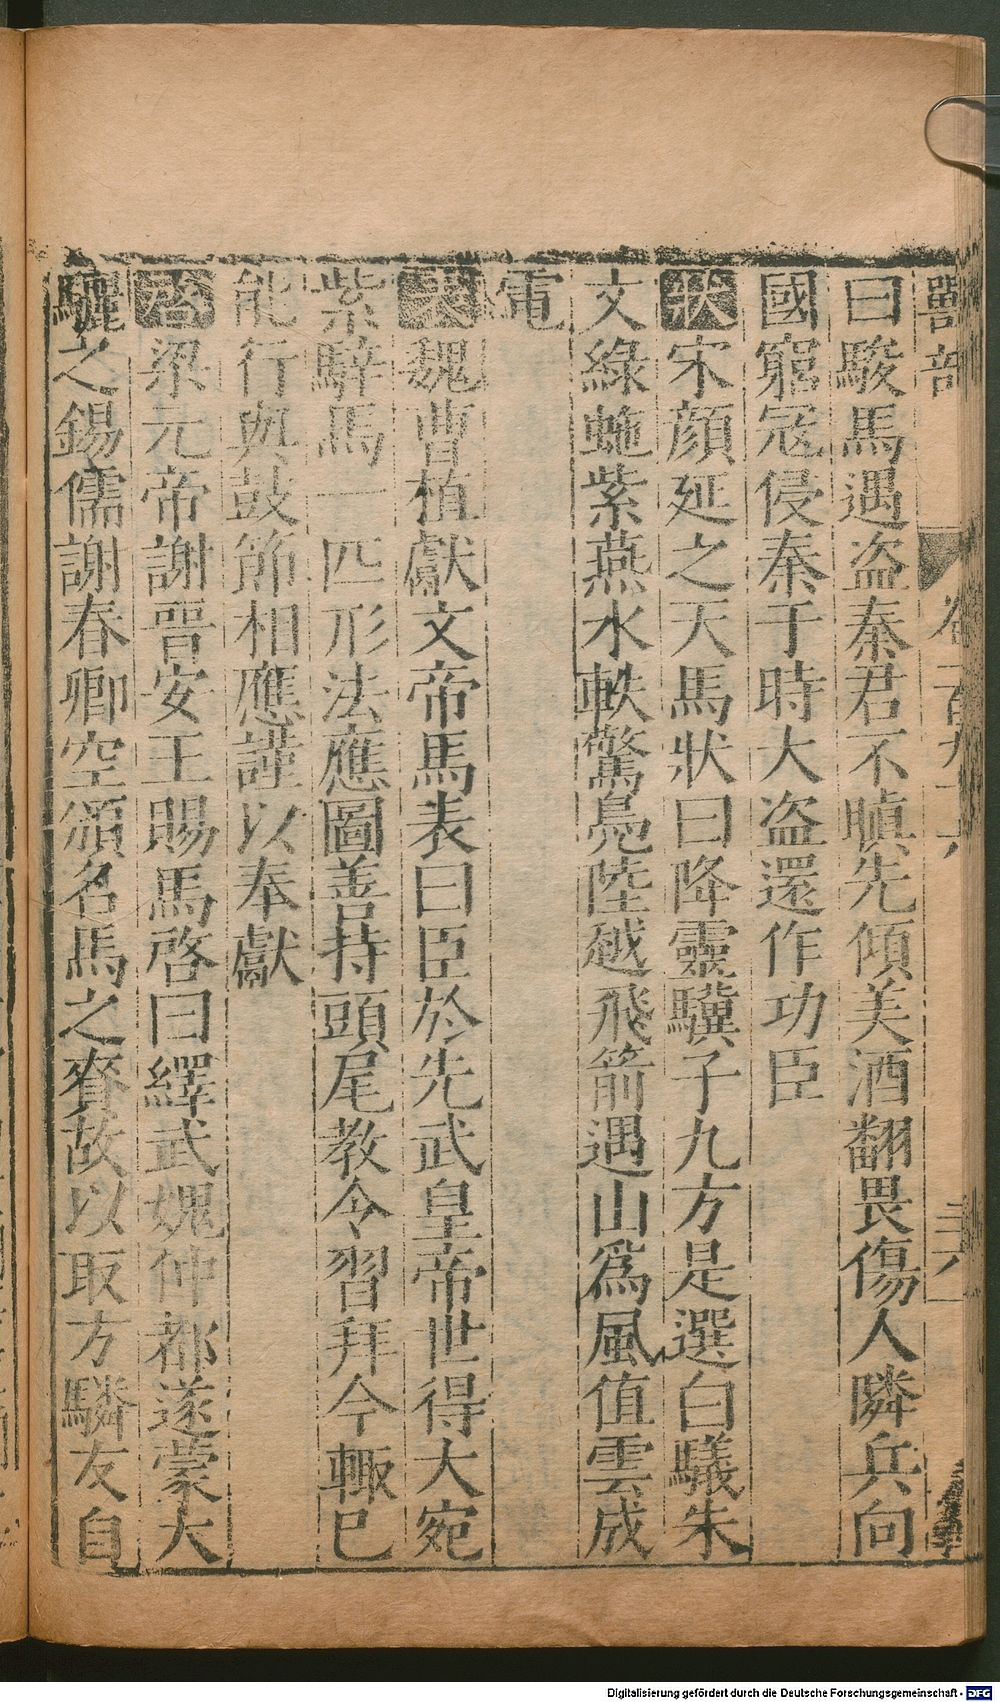 獸部
卷一百九十六
三六
曰駿馬遇盜秦君不瞋先傾美酒翻畏傷人隣兵向
國窮冦侵秦于時大盜還作功臣
狀宋顔延之天馬狀曰降靈驥子九方是選白驥朱
文綠虵紫燕水軼驚鳧陸越飛箭遇山爲風值雲成
電
表魏曹植獻文帝馬表曰臣於先武皇帝世得大宛
紫騂馬一匹形法應圖善持頭尾教令習拜今輙已
能行與鼓節相應謹以奉獻
啓梁元帝謝晉安王賜馬啓曰繹武媿仲都遂蒙大
驪之錫儒謝春卿空頒名馬之賚故以取方驎友自
Digitalisierung gefördert durch die Deutsche Forschungsgemeinschaft - DFG